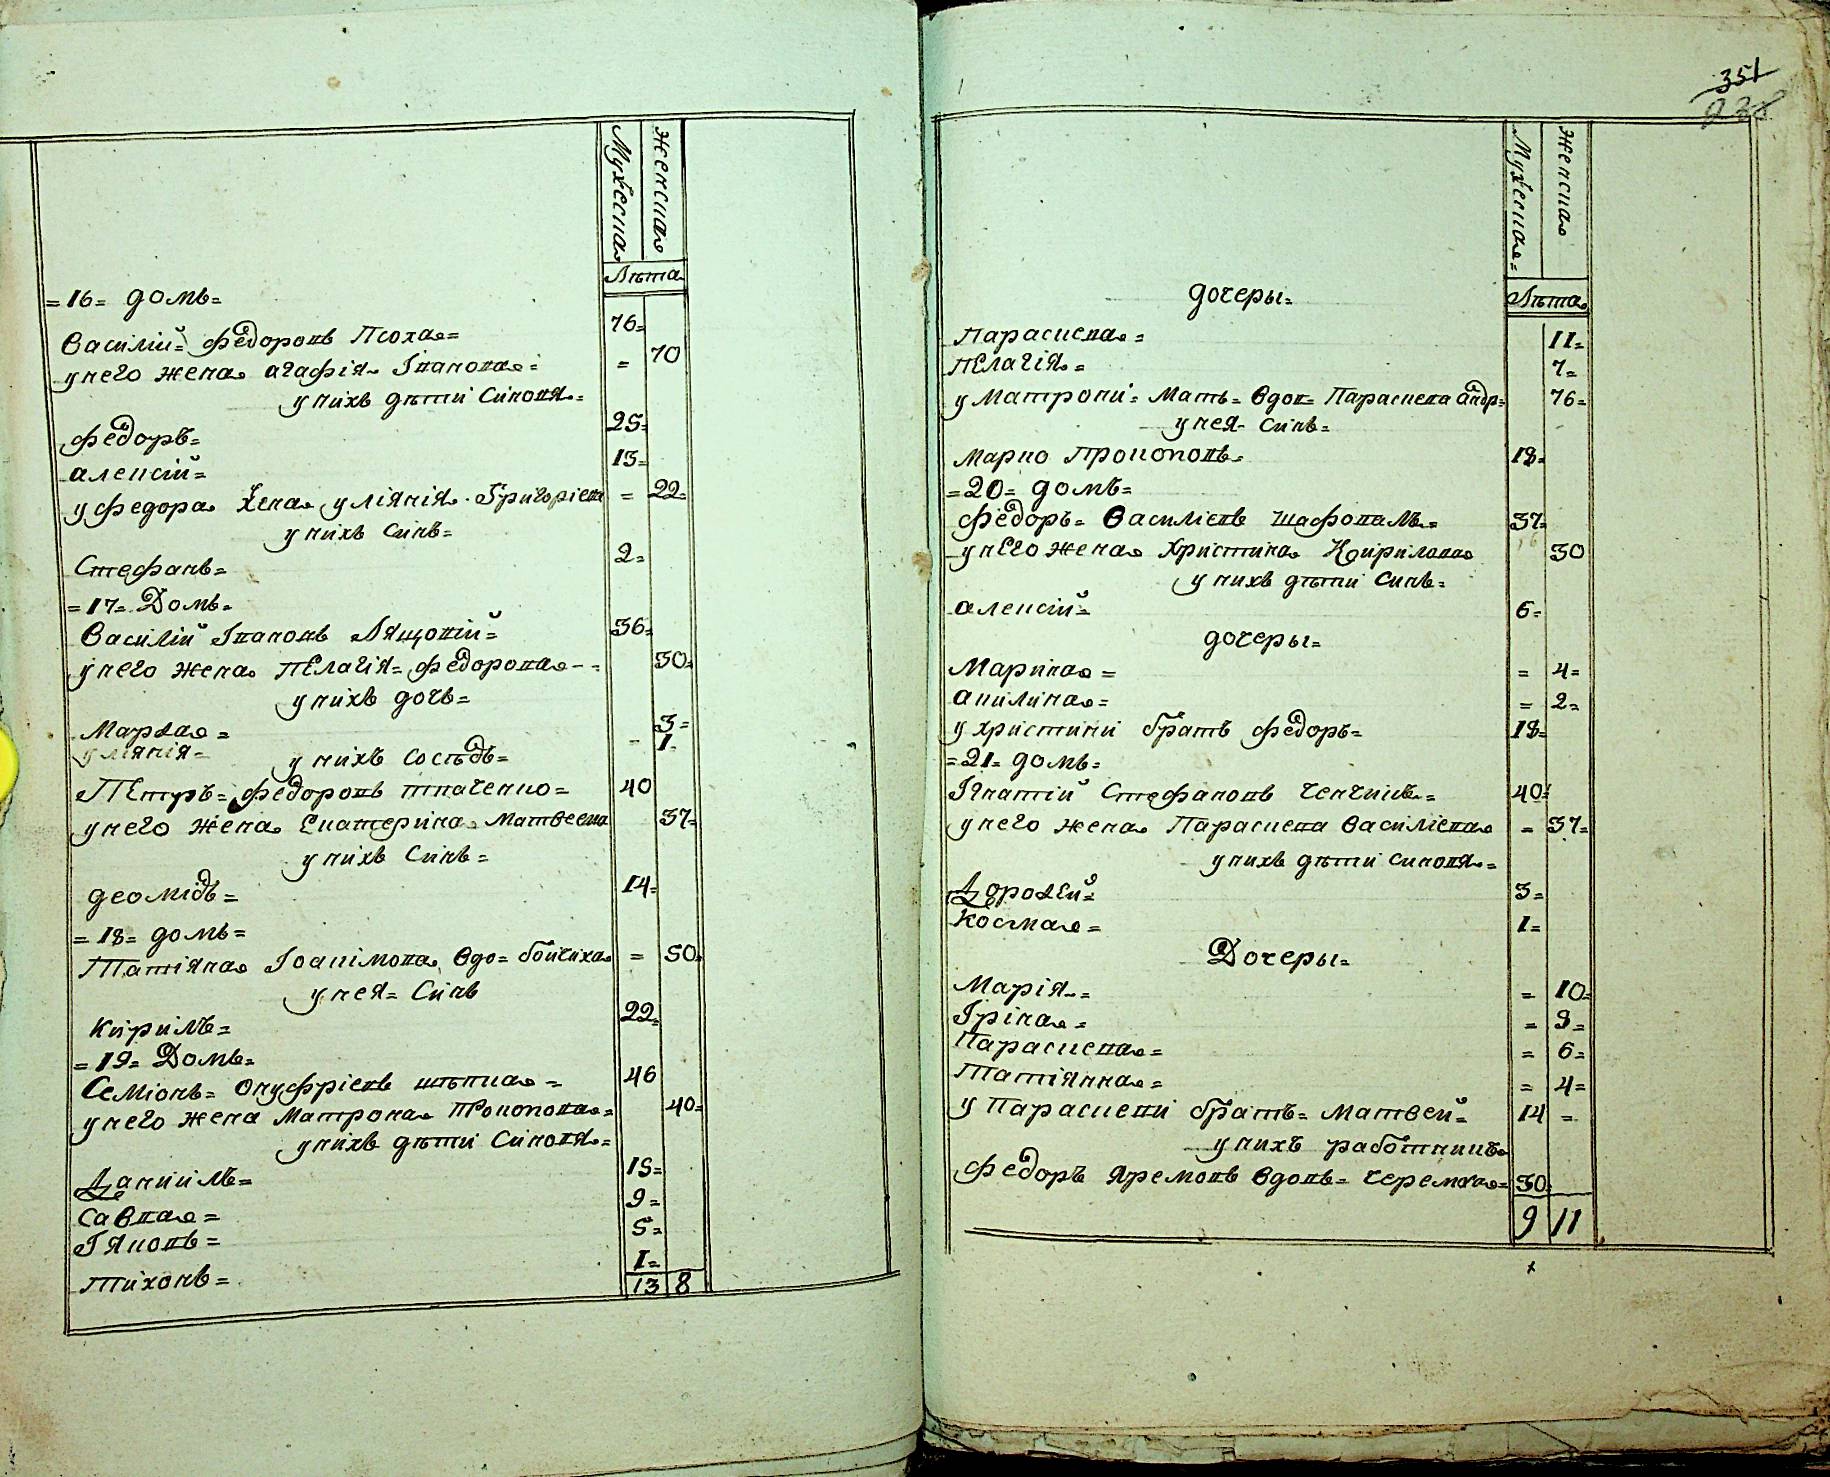 Мужеска
женска
Лѣта
=16= домъ=
Василий= Федоровъ Псоха= 76=
у него жена агафія Іванова= = 70
у нихъ дѣти Синовя=
Федоръ= 25=
алексій= 13=
у федора жена уліянія Григоріева = 22=
у нихъ Синъ=
Стефанъ= 2=
=17= Домъ=
Василій Івановъ Лящовій= 36=
у него жена пелагія= федорова= 30=
у нихъ дочь=
Марѳа= 3=
уліянія= 1=
у нихъ сосѣдъ=
Петръ= федоровъ ткаченко= 40
у него жена Екатерина Матвеева 37=
у нихъ Синъ=
деомідъ= 14=
=18= домъ=
Татіяна Іоакімова вдо= бойчиха = 50=
у нея= Синъ
кирилъ= 22=
=19= Домъ=
Семіонъ= Онуфріевъ шпѣтка= 46
у него жена Матрона прокопова= 40=
у нихъ дѣти Синовя=
Даниилъ= 15=
савка= 9=
Іяковъ= 5=
тихонъ= 1=
13 8
351
Мужеска=
женска
Лѣта
дочеры=
Параскева= 11=
пелагія= 7=
у Матрони= Мать= вдов= Параскева андр= 76=
у нея= синъ=
Марко Прокоповъ= 18=
=20= домъ=
федоръ= Василіевъ шафовалъ= 37=
у него жена Христина Кирилова 30
у нихъ дѣти Синъ=
алексій= 6=
дочеры=
Марина= = 4=
акилина= = 2=
у христини братъ федоръ= 18=
=21= домъ=
Ігнатій Стефановъ Чепчикъ= 40=
у него жена Параскева Василіева = 37=
у нихъ дѣти синовя=
Дороѳей= 3=
Косма= 1=
Дочеры=
Марія= = 10=
Іріна= = 8=
Параскева= = 6=
Татіянна= = 4=
у Параскеви братъ= матвей= 14 =
у нихъ работникъ=
федоръ яремовъ вдовъ= черемха= 50=
9 11